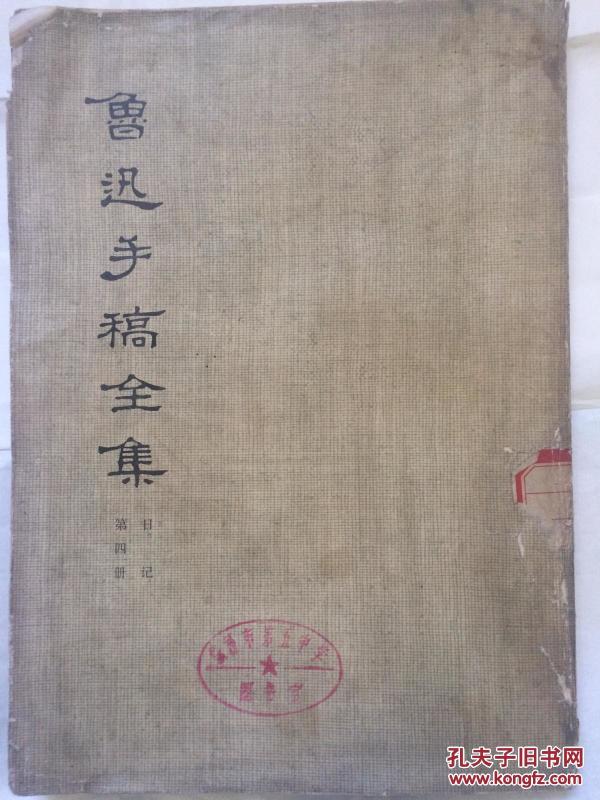 魯迅手稿全集
日记
第四册
市第五中学
图书室
孔夫子旧书网
www.kongfz.com